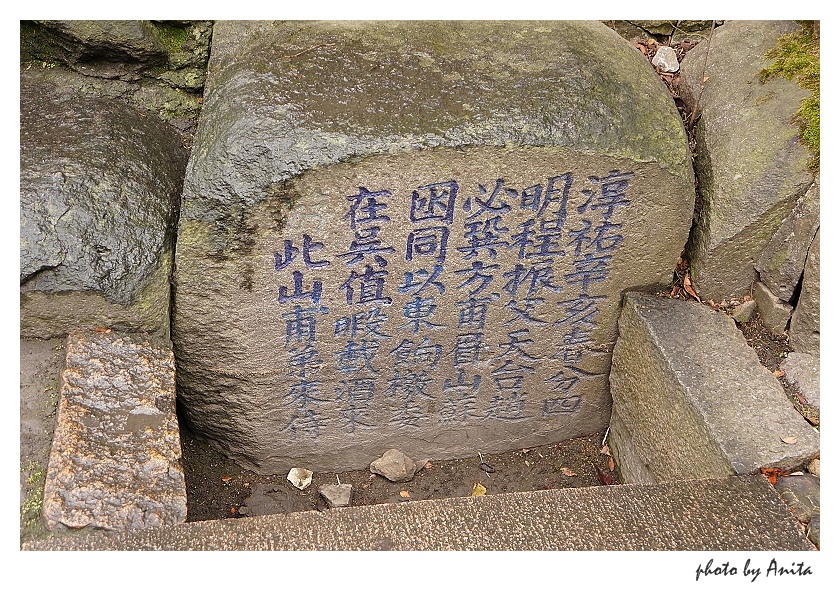 淳祐辛亥春分四
明程振父天台趙
必㢲方甫眉山蘇
囦同以東餉檄委
在吳值暇載酒來
此山甫弟來侍
photo by Anita